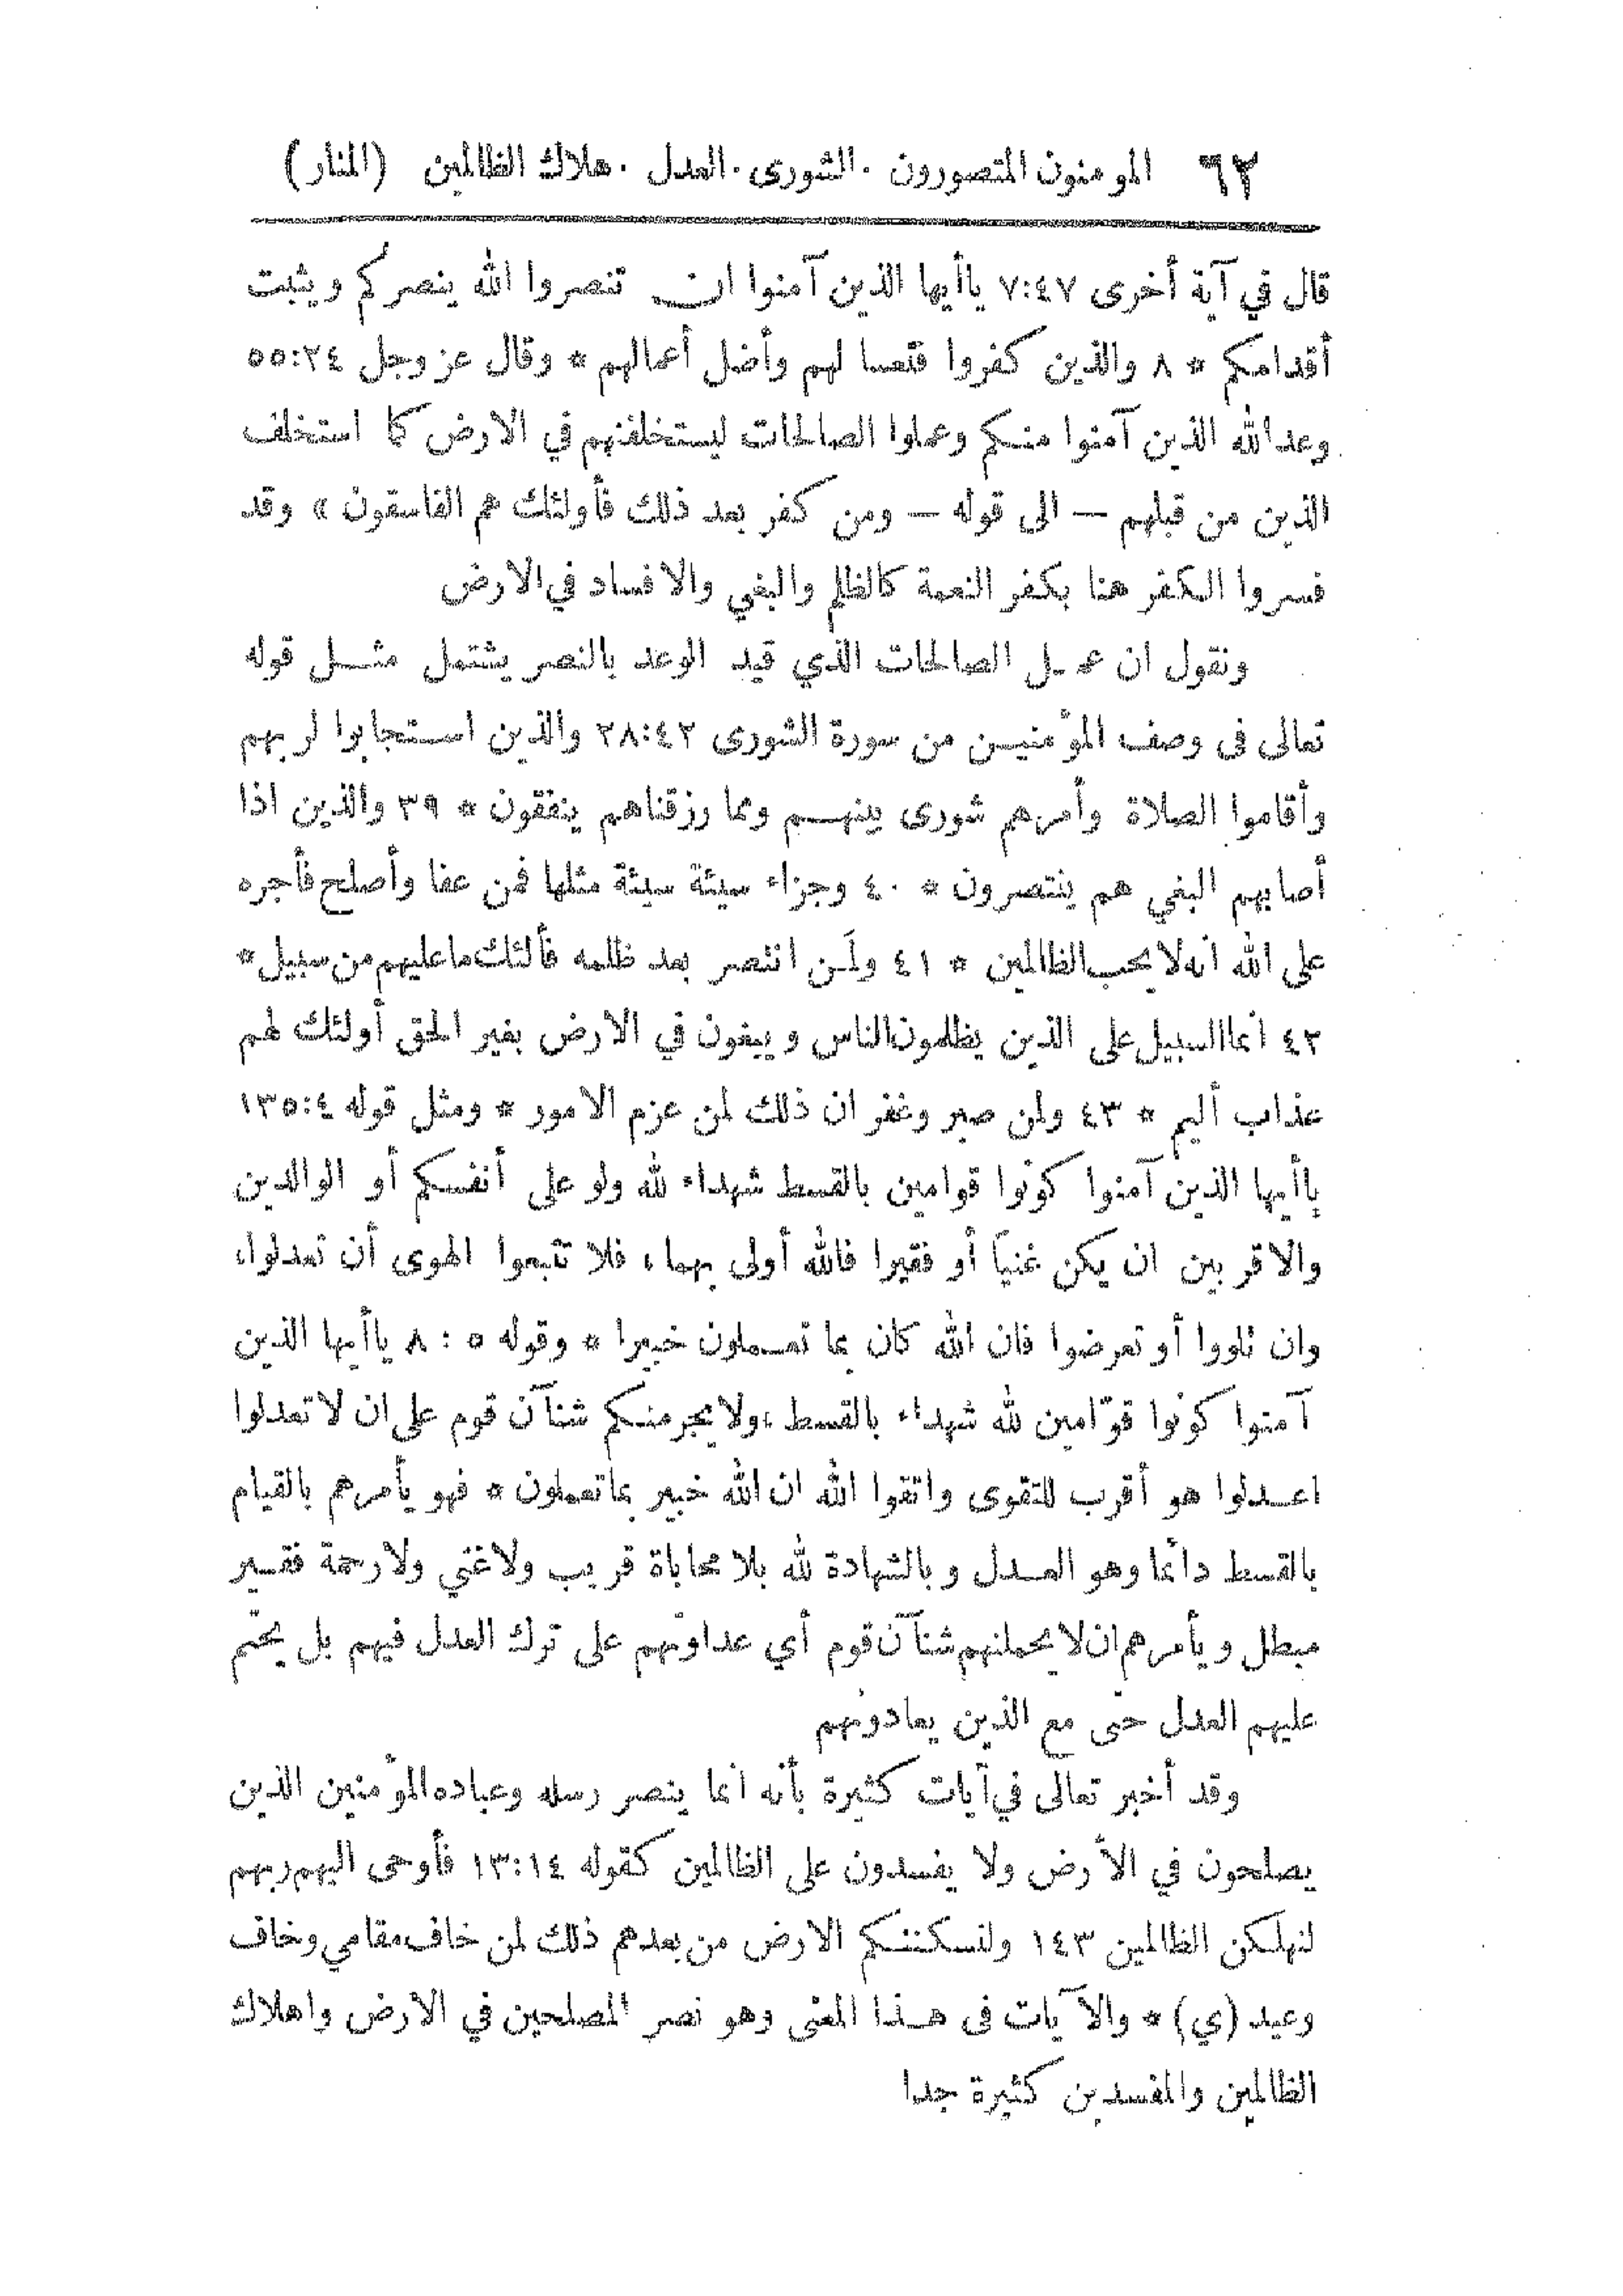 ٦٢ المؤمنون المتصورون . الشورى . العدل . هلاك الظالمين (المنار)
قال في آية أخرى ٧:٤٧ ياأيها الذين آمنوا ان تنصروا الله ينصركم ويثبت
أقدامكم * ٨ والذين كفروا فتعسا لهم وأضل أعمالهم * وقال عز وجل ٥٥:٢٤
وعد الله الذين آمنوا منكم وعملوا الصالحات ليستخلفنهم في الارض كما استخلف
الذين من قبلهم — الى قوله — ومن كفر بعد ذلك فأولئك هم الفاسقون » وقد
فسروا الكفر هنا بكفر النعمة كالظلم والبغي والافساد في الارض
ونقول ان عمل الصالحات الذي قيد الوعد بالنصر يشتمل مثل قوله
تعالى في وصف المؤمنين من سورة الشورى ٣٨:٤٢ والذين استجابوا لربهم
وأقاموا الصلاة وأمرهم شورى بينهم ومما رزقناهم ينفقون * ٣٩ والذين اذا
أصابهم البغي هم ينتصرون * ٤٠ وجزاء سيئة سيئة مثلها فمن عفا وأصلح فأجره
على الله انه لا يحب الظالمين * ٤١ ولمن انتصر بعد ظلمه فألئك ما عليهم من سبيل *
٤٢ انما السبيل على الذين يظلمون الناس ويبغون في الارض بغير الحق أولئك لهم
عذاب أليم * ٤٣ ولمن صبر وغفر ان ذلك لمن عزم الامور * ومثل قوله ١٣٥:٤
ياأيها الذين آمنوا كونوا قوامين بالقسط شهداء لله ولو على أنفسكم أو الوالدين
والاقربين ان يكن غنيا أو فقيرا فالله أولى بهما ، فلا تتبعوا الهوى أن تعدلوا،
وان تلووا أو تعرضوا فان الله كان بما تعملون خبيرا * وقوله ٥ : ٨ ياأيها الذين
آمنوا كونوا قوّامين لله شهداء بالقسط ، ولا يجرمنكم شنآن قوم على ان لا تعدلوا
اعدلوا هو أقرب للتقوى واتقوا الله ان الله خبير بما تعملون * فهو يأمرهم بالقيام
بالقسط دائما وهو العدل وبالشهادة لله بلا محاباة قريب ولاغني ولارحمة فقير
مبطل ويأمرهم ان لا يحملنهم شنآن قوم أي عداوتهم على ترك العدل فيهم بل يحتّم
عليهم العدل حتى مع الذين يعادونهم
وقد أخبر تعالى في آيات كثيرة بأنه انما ينصر رسله وعباده المؤمنين الذين
يصلحون في الأرض ولا يفسدون على الظالمين كقوله ١٣:١٤ فأوحى اليهم ربهم
لنهلكن الظالمين ١٤٣ ولنسكننكم الارض من بعدهم ذلك لمن خاف مقامي وخاف
وعيد (ي) * والآيات في هذا المعنى وهو نصر المصلحين في الارض واهلاك
الظالمين والمفسدين كثيرة جدا